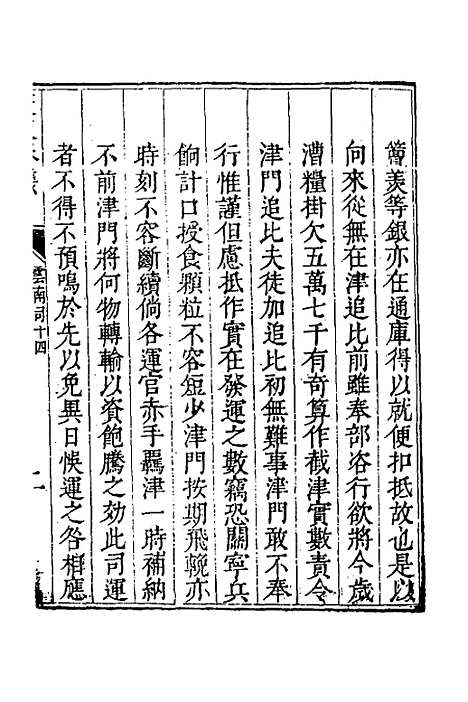 羨等銀亦在通庫得以就便扣抵故也是以
向來從無在津追比前雖奉部咨行欲將今歲
漕糧掛欠五萬七千有奇算作截津實數責令
津門追比夫徒加追比初無難事津門敢不奉
行惟謹但慮抵作實在發運之數竊恐關寧兵
餉計口授食顆粒不容短少津門按期飛輓亦
時刻不容斷續倘各運官赤手羈津一時補納
不前津門將何物轉輸以資飽騰之効此司運
者不得不預鳴於先以免異日悞運之咎相應
雲南司十四